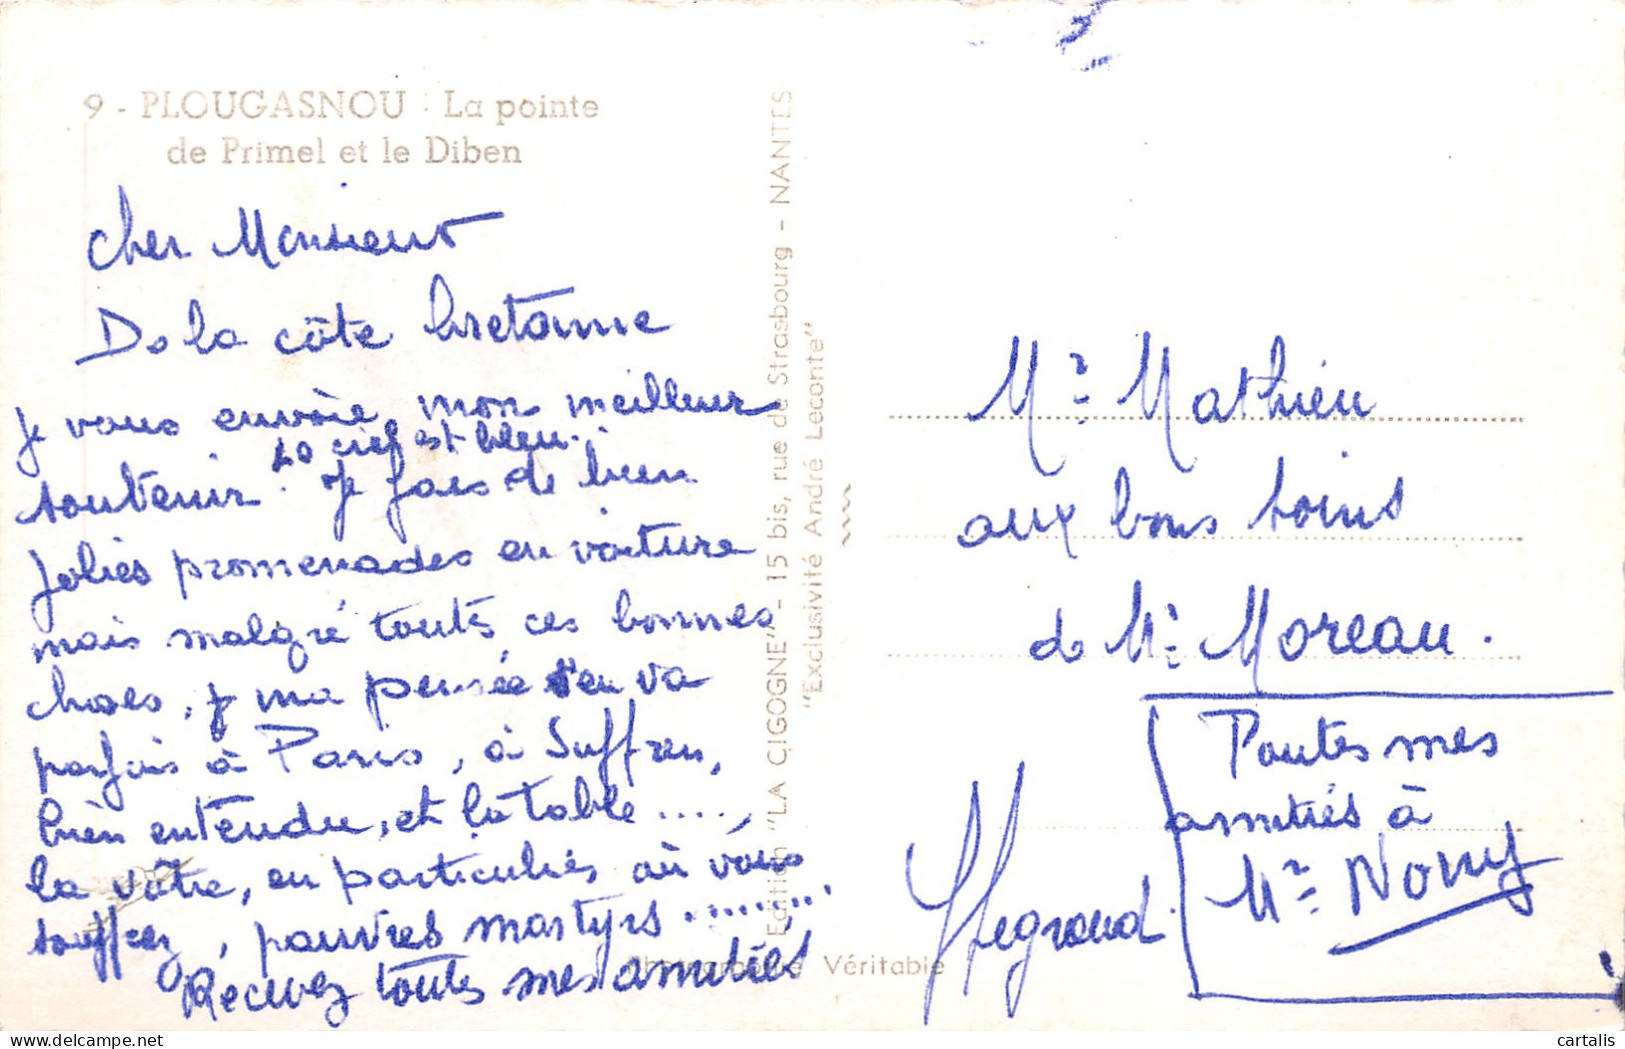 9 - PLOUGASNOU : La pointe
de Primel et le Diben
Cher Monsieur
De la côte bretonne
je vous envoie mon meilleur
Le ciel est bleu.
souvenir. Je fais de bien
jolies promenades en voiture
mais malgré toutes ces bonnes
choses, ma pensée s'en va
parfois à Paris, à Suffren,
bien entendu, et la table ....,
la vôtre, en particulier où vous
souffrez, pauvres martyrs ........
Recevez toutes mes amitiés
Edition "LA CIGOGNE" - 15 bis, rue de Strasbourg - NANTES
"Exclusivité André Leconte"
Photographie Véritable
Mr Mathieu
aux bons soins
de Mr Moreau.
Toutes mes
amitiés à
Mr Nony
Legrand.
delcampe.net
cartalis